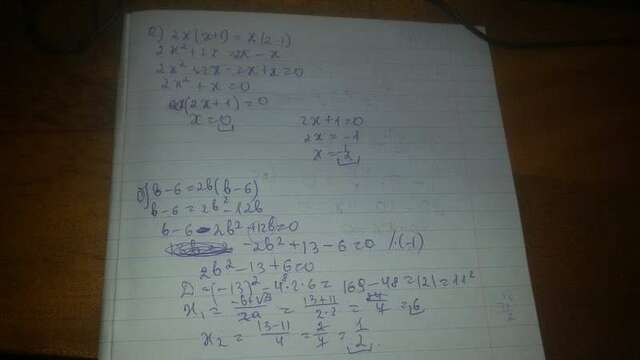 a) 2x(x+1) = x(2-1)
2x²+2x = 2x - x
2x²+2x-2x+x=0
2x² + x = 0
x(2x+1)=0
x=0
2x+1=0
2x = -1
x=-1/2
б) b-6=2b(b-6)
b-6=2b²-12b
b-6-2b²+12b=0
-2b²+13-6=0 /·(-1)
2b²-13+6=0
D=(-13)²-4·2·6=169-48=121=11²
x₁ = -b+√D/2a = 13+11/2·2 = 24/4 = 6
x₂ = 13-11/4 = 2/4 = 1/2